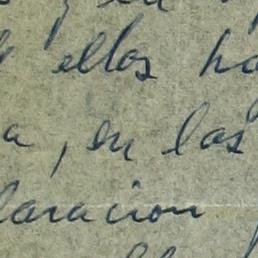 ellos ha
a, en las
laracion